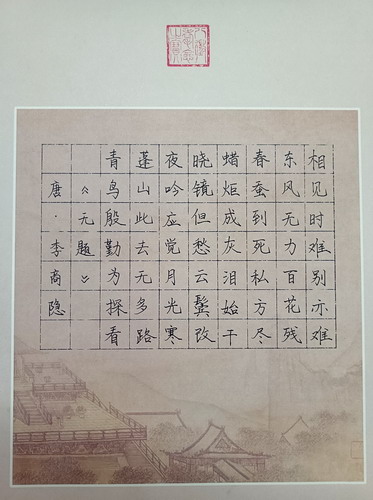 相见时难别亦难
东风无力百花残
春蚕到死私方尽
蜡炬成灰泪始干
晓镜但愁云鬓改
夜吟应觉月光寒
蓬山此去无多路
青鸟殷勤为探看
《元题》
唐·李商隐